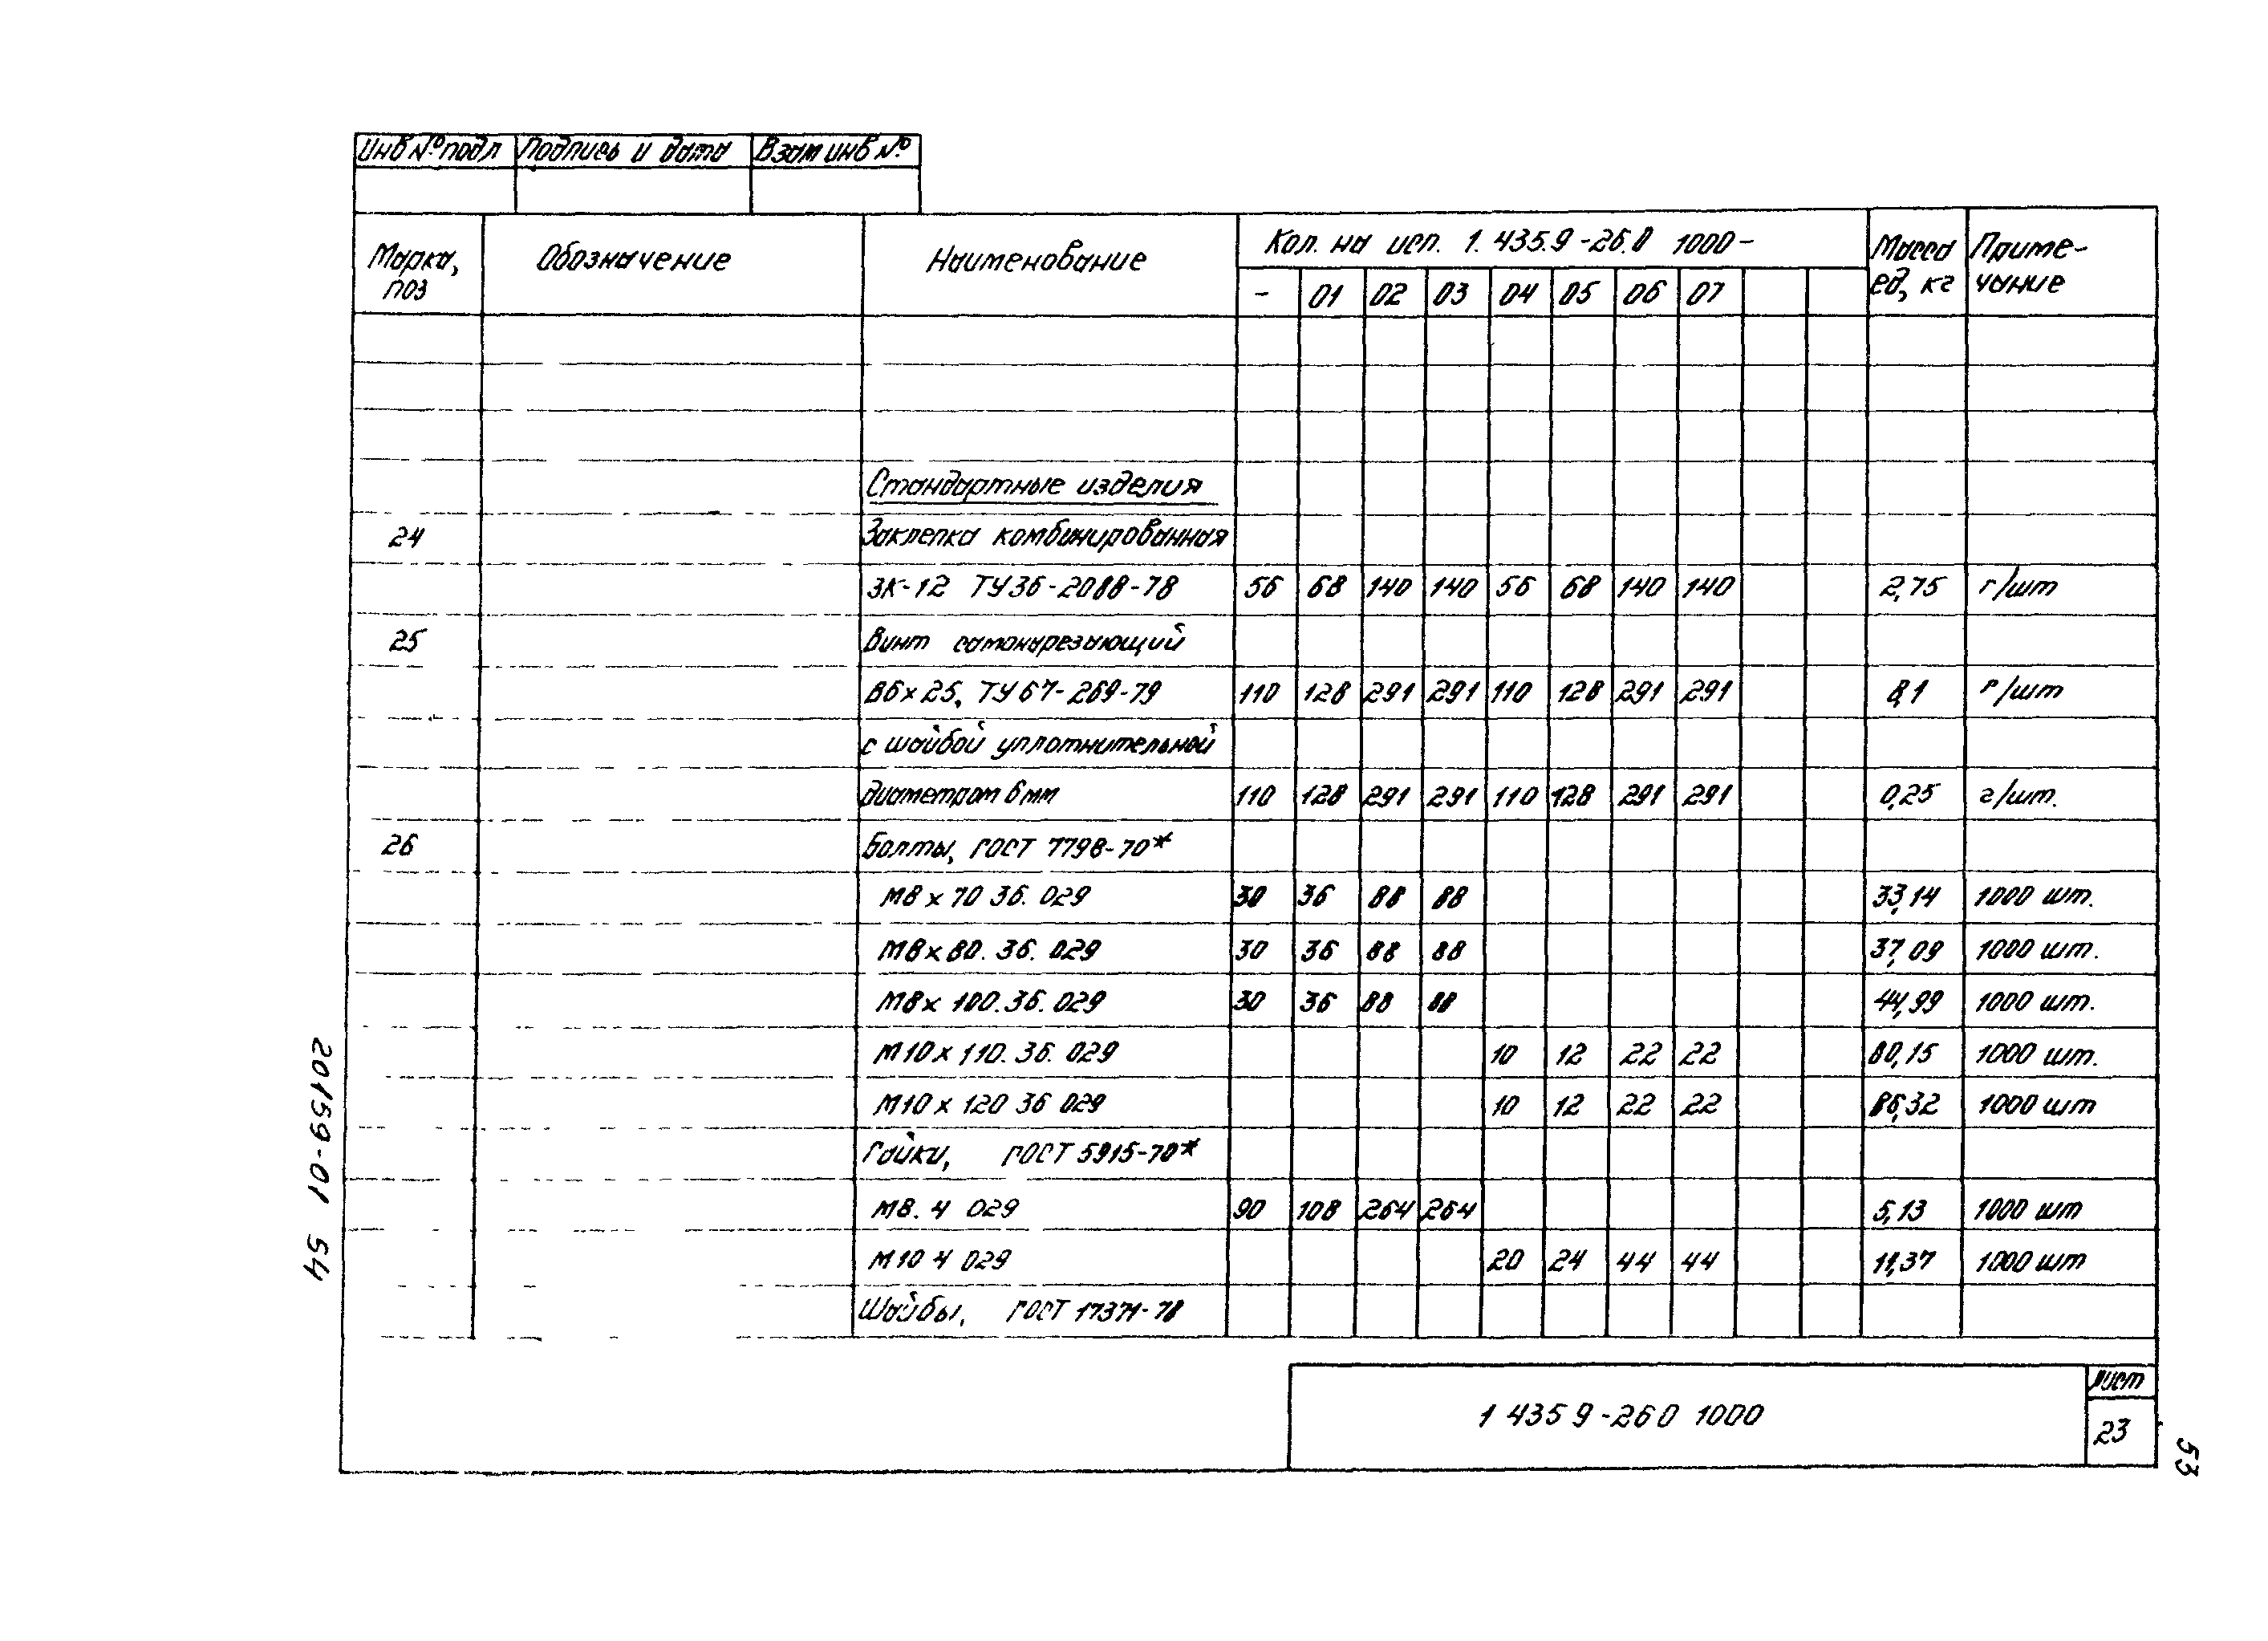 Инв № подл Подпись и дата Взам инв №
Марка, поз Обозначение Наименование Кол. на исп. 1.435.9-26.0 1000- Масса ед, кг Приме-чание
- 01 02 03 04 05 06 07
Стандартные изделия
24 Заклепка комбинированная
ЗК-12 ТУ36-2088-78 56 68 140 140 56 68 140 140 2,75 г/шт
25 Винт самонарезающий
В6х25, ТУ67-269-79 110 128 291 291 110 128 291 291 8,1 г/шт
с шайбой уплотнительной
диаметром 6мм 110 128 291 291 110 128 291 291 0,25 г/шт.
26 Болты, ГОСТ 7798-70*
М8х70 36. 029 30 36 88 88 33,14 1000 шт.
М8х80. 36. 029 30 36 88 88 37,09 1000 шт.
М8х100.36.029 30 36 88 88 44,99 1000 шт.
М10х110.36.029 10 12 22 22 80,15 1000 шт.
М10х120 36 029 10 12 22 22 86,32 1000 шт
Гайки, ГОСТ 5915-70*
М8.4 029 90 108 264 264 5,13 1000 шт
М10 4 029 20 24 44 44 11,37 1000 шт
Шайбы, ГОСТ 17371-78
1 435 9-26 0 1000
Лист
23
20159-01 54
53